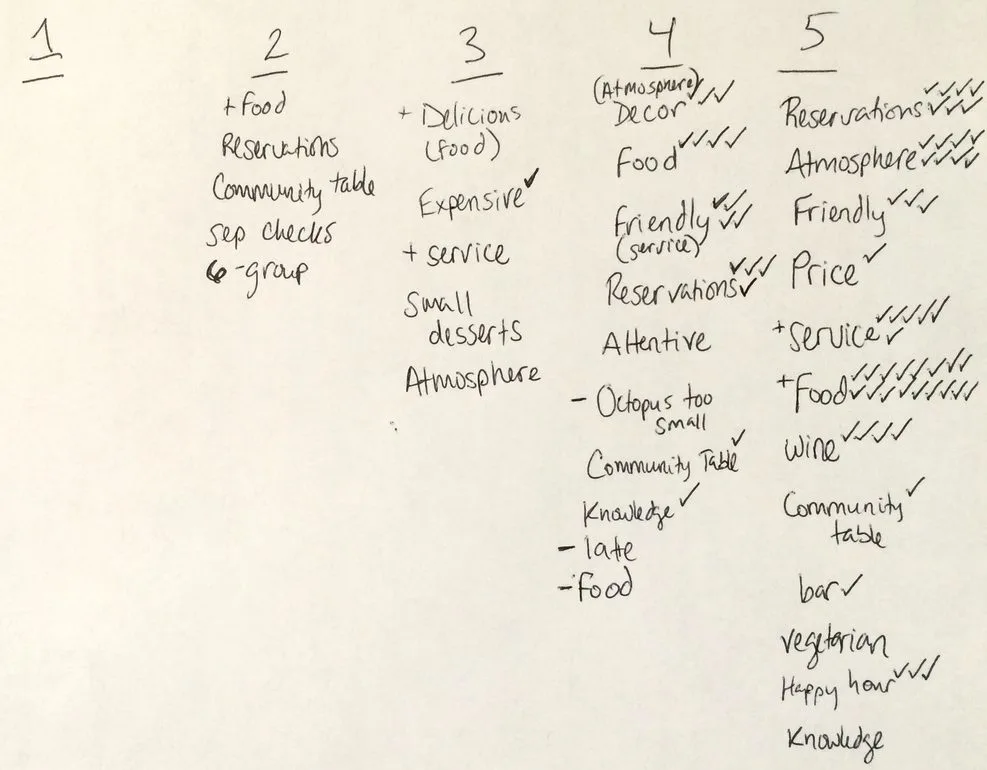 1
2
+ Food
Reservations
Community table
sep checks
6-group
3
+ Delicious
(food)
Expensive ✓
+ service
Small
desserts
Atmosphere
4
(Atmosphere)
Decor ✓✓✓
Food ✓✓✓✓
Friendly ✓✓✓✓
(service)
Reservations ✓✓✓✓
Attentive
- Octopus too
small
Community Table ✓
Knowledge ✓
- late
- Food
5
Reservations ✓✓✓✓✓✓✓
Atmosphere ✓✓✓✓✓✓✓✓
Friendly ✓✓✓
Price ✓
+ Service ✓✓✓✓✓✓
+ Food ✓✓✓✓✓✓✓✓✓✓✓✓✓✓✓
wine ✓✓✓✓
Community ✓
table
bar ✓
vegetarian
Happy hour ✓✓✓
Knowledge